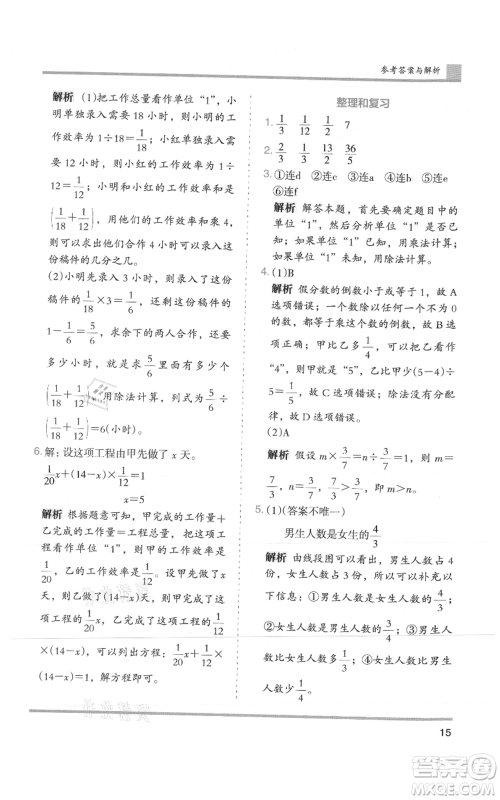 参考答案与解析
解析 (1)把工作总量看作单位“1”，小
明单独录入需要18小时，所以小明的工
作效率为1÷18=1/18；小红单独录入需要
12小时，则可以得到小红的工作效率1÷
12=1/12，小明和小红的工作效率和为
(1/18+1/12)，用他们的效率和乘4，
就可以求出两人合作4小时可以录入这份
稿件的几分之几。
(2)小明先录入3小时，则可以录入这份
稿件的1/18×3=1/6，还剩下这份稿件的
1-1/6=5/6，求余下的两人合作，还要
多少小时，就是求5/6里面有多少个
(1/18+1/12)，用除法计算，列式为5/6÷
(1/18+1/12)=6(小时)。
6. 解：设这项工程由甲先做了x天。
1/20x+(14-x)×1/12=1
x=5
解析 根据题意可知，甲完成的工作量+
乙完成的工作量=工程总量，把这项工
程看作单位“1”，则甲的工作效率是
1/20，乙的工作效率是1/12，设甲先做了x
天，则乙做了(14-x)天，甲完成了这
项工程的1/20x，乙完成了这项工程的1/12
×(14-x)，可以列出方程：1/20x+1/12×
(14-x)=1，解方程即可。
整理和复习
1. 1/3 1/4 1/2 7
2. 2/3 1/2 13/2 36/5
3. ①连d ②连a ③连b ④连c ⑤连e
⑥连f
解析 解答本题，首先要确定题目中的
单位“1”，然后分析单位“1”是否已
知；如果单位“1”已知，用乘法计算；
如果单位“1”未知，用除法计算。
4. (1)B
解析 假分数的倒数小于或等于1，故A
选项错误；一个数(0除外)除以一个不为
0的数，等于乘这个数的倒数，故B选
项正确；甲比乙多1/4，可以把乙看作
“4”，则甲就为“5”，乙比甲少(5-4)÷
5=1/5，故C选项错误；除法没有分配
律，故D选项错误。
(2)A
解析 假设m×3/7=n÷3/7=1，则m=
7/3，n=3/7，因为7/3>3/7，所以m>n。
5. (1)(答案不唯一)
男生人数是女生的4/3
解析 由线段图可以看出，男生人数占4
份，女生人数占3份，所以可以补充以
下信息：①男生人数是女生人数的4/3；
②女生人数是男生人数的3/4；③男生人
数比女生人数多1/3；④女生人数比男生
人数少1/4。
15